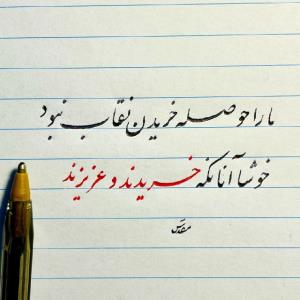 ما را حوصله خریدن نقاب نبود
خوشا آنانکه خریدند و عزیزند
مقدس